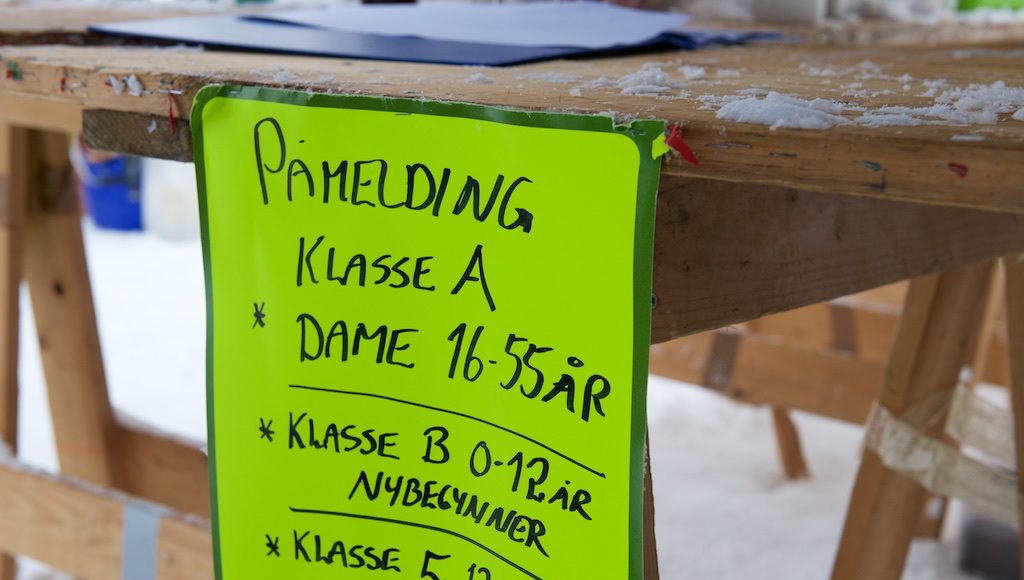 PÅMELDING
KLASSE A
* DAME 16-55 ÅR
* KLASSE B 0-12 ÅR
NYBEGYNNER
* KLASSE 5-12